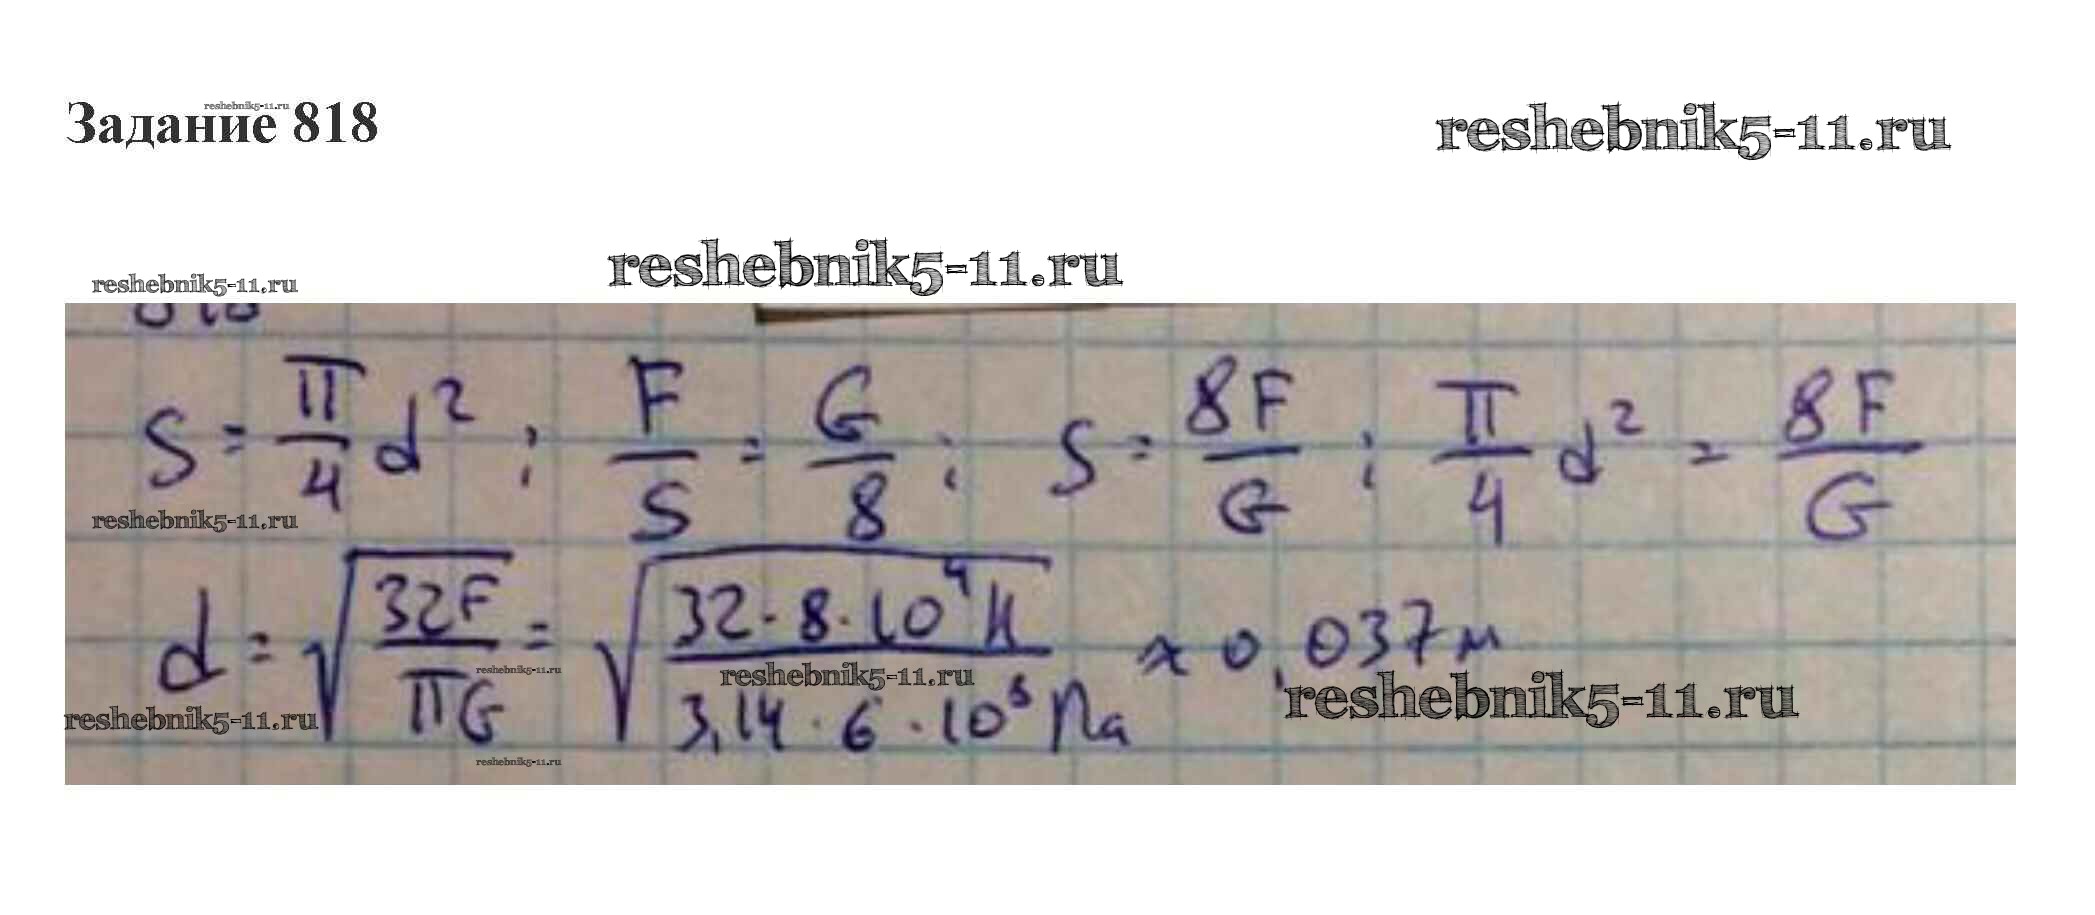 Задание 818
reshebnik5-11.ru
reshebnik5-11.ru
reshebnik5-11.ru
reshebnik5-11.ru
S = π/4 d² ; F/S = G/8 ; S = 8F/G ; π/4 d² = 8F/G
reshebnik5-11.ru
d = √(32F/πG) = √(32·8·10⁴Н/3,14·6·10⁸Па) ≈ 0,037м
reshebnik5-11.ru
reshebnik5-11.ru
reshebnik5-11.ru
reshebnik5-11.ru
reshebnik5-11.ru